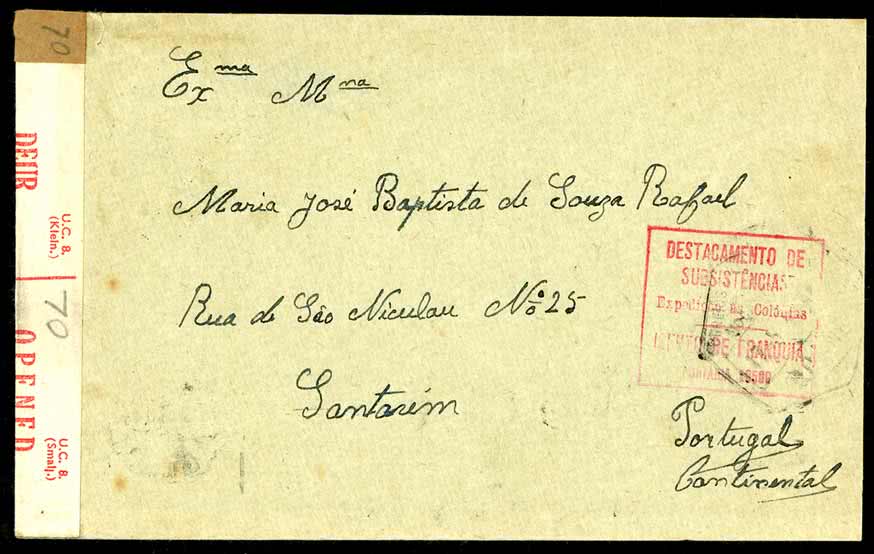 Ex ma M na
Maria José Baptista de Souza Rafael
Rua de São Niculau Nº 25
Santarém
Portugal
Continental
DESTACAMENTO DE
SUBSISTÊNCIAS
Expedição às Colónias
DE FRANQUIA
70
U.C. 8.
(Klein.)
70
OPENED
U.C. 8.
(Small.)